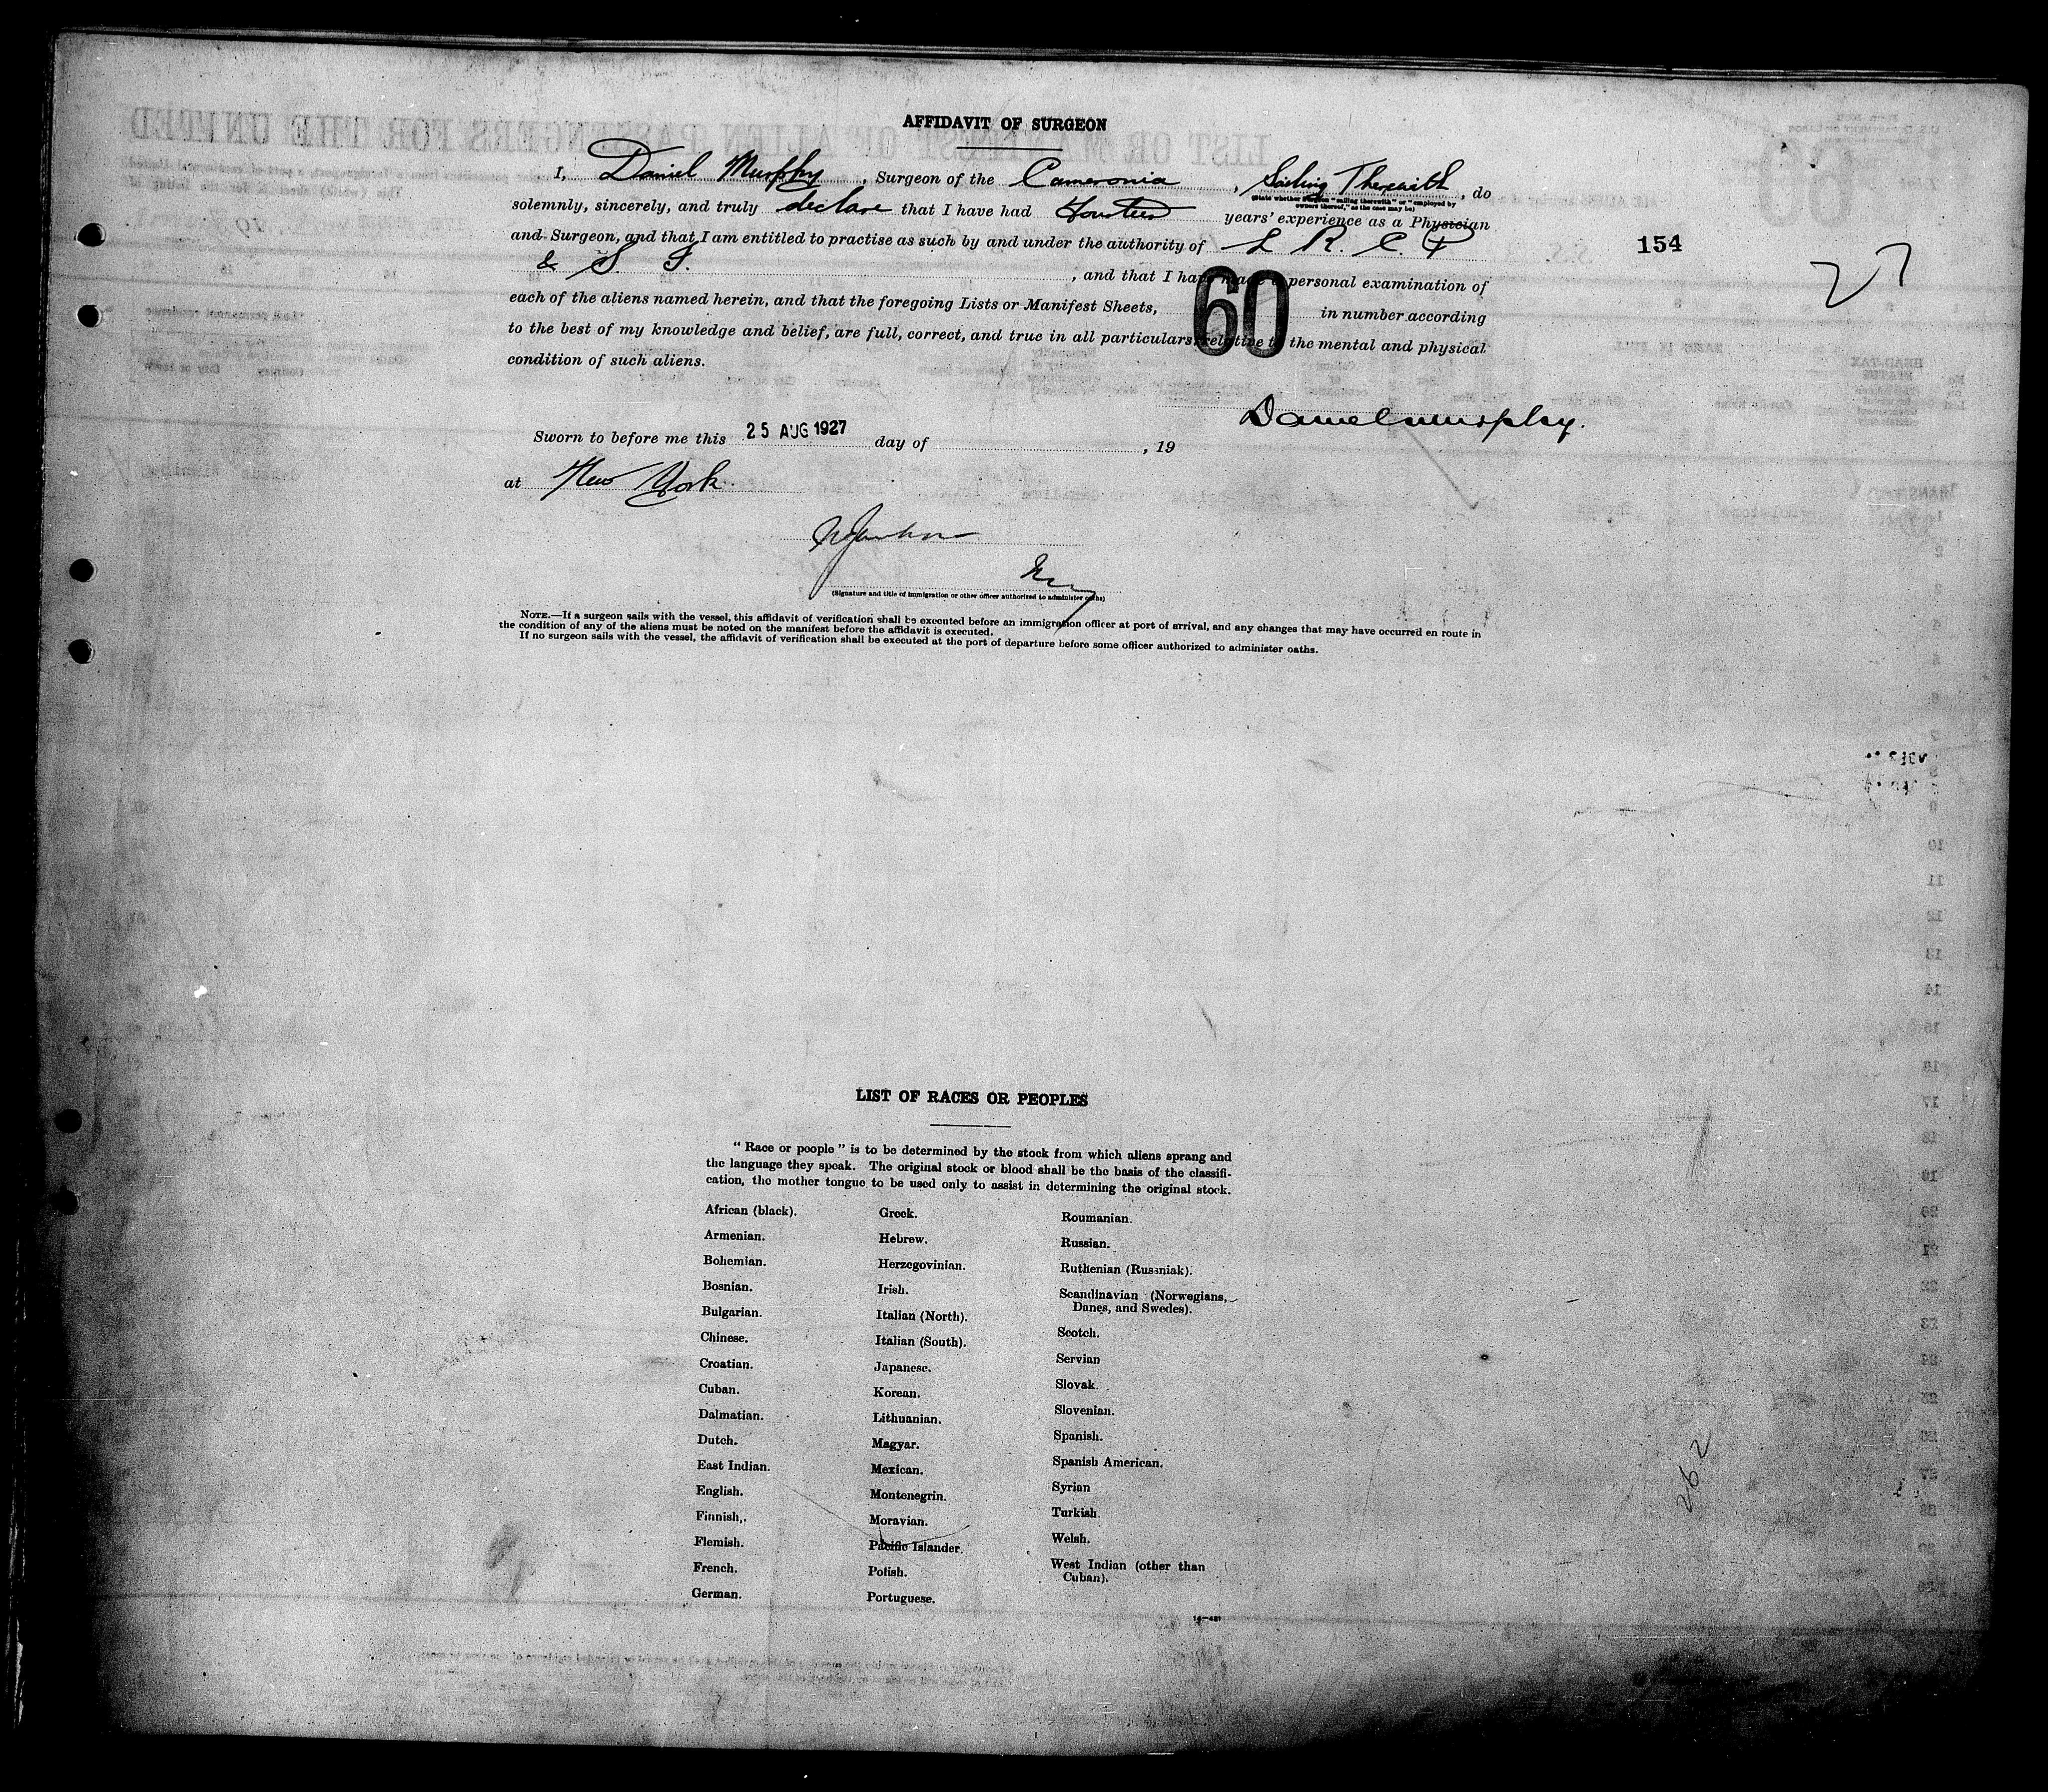 AFFIDAVIT OF SURGEON
I, Daniel Murphy, Surgeon of the Cameronia, Sailing Therewith, do
(State whether surgeon "sailing therewith" or "employed by
owners thereof," as the case may be)
solemnly, sincerely, and truly declare that I have had Fourteen years' experience as a Physician
and Surgeon, and that I am entitled to practise as such by and under the authority of L R. C. P
& S. I.
, and that I have made a personal examination of
each of the aliens named herein, and that the foregoing Lists or Manifest Sheets, 60 in number according
to the best of my knowledge and belief, are full, correct, and true in all particulars relative to the mental and physical
condition of such aliens.
154
27
Daniel Murphy.
Sworn to before me this 25 AUG 1927 day of , 19
at New York
(Signature and title of immigration or other officer authorized to administer oaths)
NOTE.—If a surgeon sails with the vessel, this affidavit of verification shall be executed before an immigration officer at port of arrival, and any changes that may have occurred en route in
the condition of any of the aliens must be noted on the manifest before the affidavit is executed.
If no surgeon sails with the vessel, the affidavit of verification shall be executed at the port of departure before some officer authorized to administer oaths.
LIST OF RACES OR PEOPLES
"Race or people" is to be determined by the stock from which aliens sprang and
the language they speak. The original stock or blood shall be the basis of the classifi-
cation, the mother tongue to be used only to assist in determining the original stock.
African (black).
Armenian.
Bohemian.
Bosnian.
Bulgarian.
Chinese.
Croatian.
Cuban.
Dalmatian.
Dutch.
East Indian.
English.
Finnish.
Flemish.
French.
German.
Greek.
Hebrew.
Herzegovinian.
Irish.
Italian (North).
Italian (South).
Japanese.
Korean.
Lithuanian.
Magyar.
Mexican.
Montenegrin.
Moravian.
Pacific Islander.
Polish.
Portuguese.
Roumanian.
Russian.
Ruthenian (Russniak).
Scandinavian (Norwegians,
Danes, and Swedes).
Scotch.
Servian
Slovak.
Slovenian.
Spanish.
Spanish American.
Syrian
Turkish
Welsh.
West Indian (other than
Cuban).
262